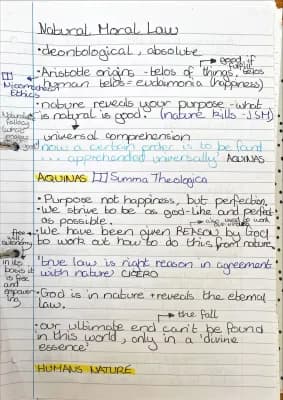 Natural Moral Law
• deontological, absolute
good if fulfill telos
• Aristotle origins - telos of things,
human telos = eudaimonia (happiness)
Nicomachean Ethics
• nature reveals your purpose - what
is natural is good. (nature kills - JSM)
Naturalistic fallacy
good
universal comprehension
'now a certain order is to be found
... apprehended universally' AQUINAS
AQUINAS Summa Theologica
• Purpose not happiness, but perfection.
We strive to be as god-like and perfect
as possible.
also used to work out virtues
• We have been given REASON by God
to work out how to do this from nature.
free will autonomy
in its basis it is free and empowering
'true law is right reason in agreement
with nature' CICERO
• God is in nature + reveals the eternal
law.
the fall
• our ultimate end can't be found
in this world, only in a 'divine
essence'
HUMANS NATURE